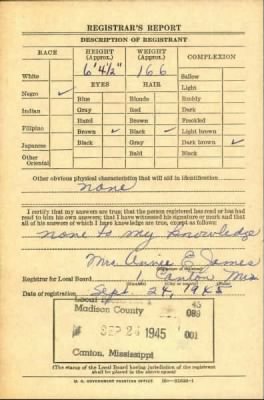 REGISTRAR'S REPORT
DESCRIPTION OF REGISTRANT
RACE
HEIGHT (Approx.)
WEIGHT (Approx.)
COMPLEXION
6' 4½" 166
White
EYES HAIR
Sallow
Light
Negro ✓
Blue Blonde Ruddy
Indian Gray Red Dark
Hazel Brown Freckled
Filipino Brown ✓ Black ✓ Light brown
Japanese Black Gray Dark brown ✓
Other Oriental
Bald Black
Other obvious physical characteristics that will aid in identification
None
I certify that my answers are true; that the person registered has read or has had read to him his own answers; that I have witnessed his signature or mark and that all of his answers of which I have knowledge are true, except as follows:
None to my knowledge
Mrs. Annie E. James
Registrar for Local Board 1 Canton Miss
Date of registration Sept. 24, 1945
Local
Madison County 45
089
SEP 26 1945 001
Canton, Mississippi
(The stamp of the Local Board having jurisdiction of the registrant shall be placed in the above space)
U. S. GOVERNMENT PRINTING OFFICE